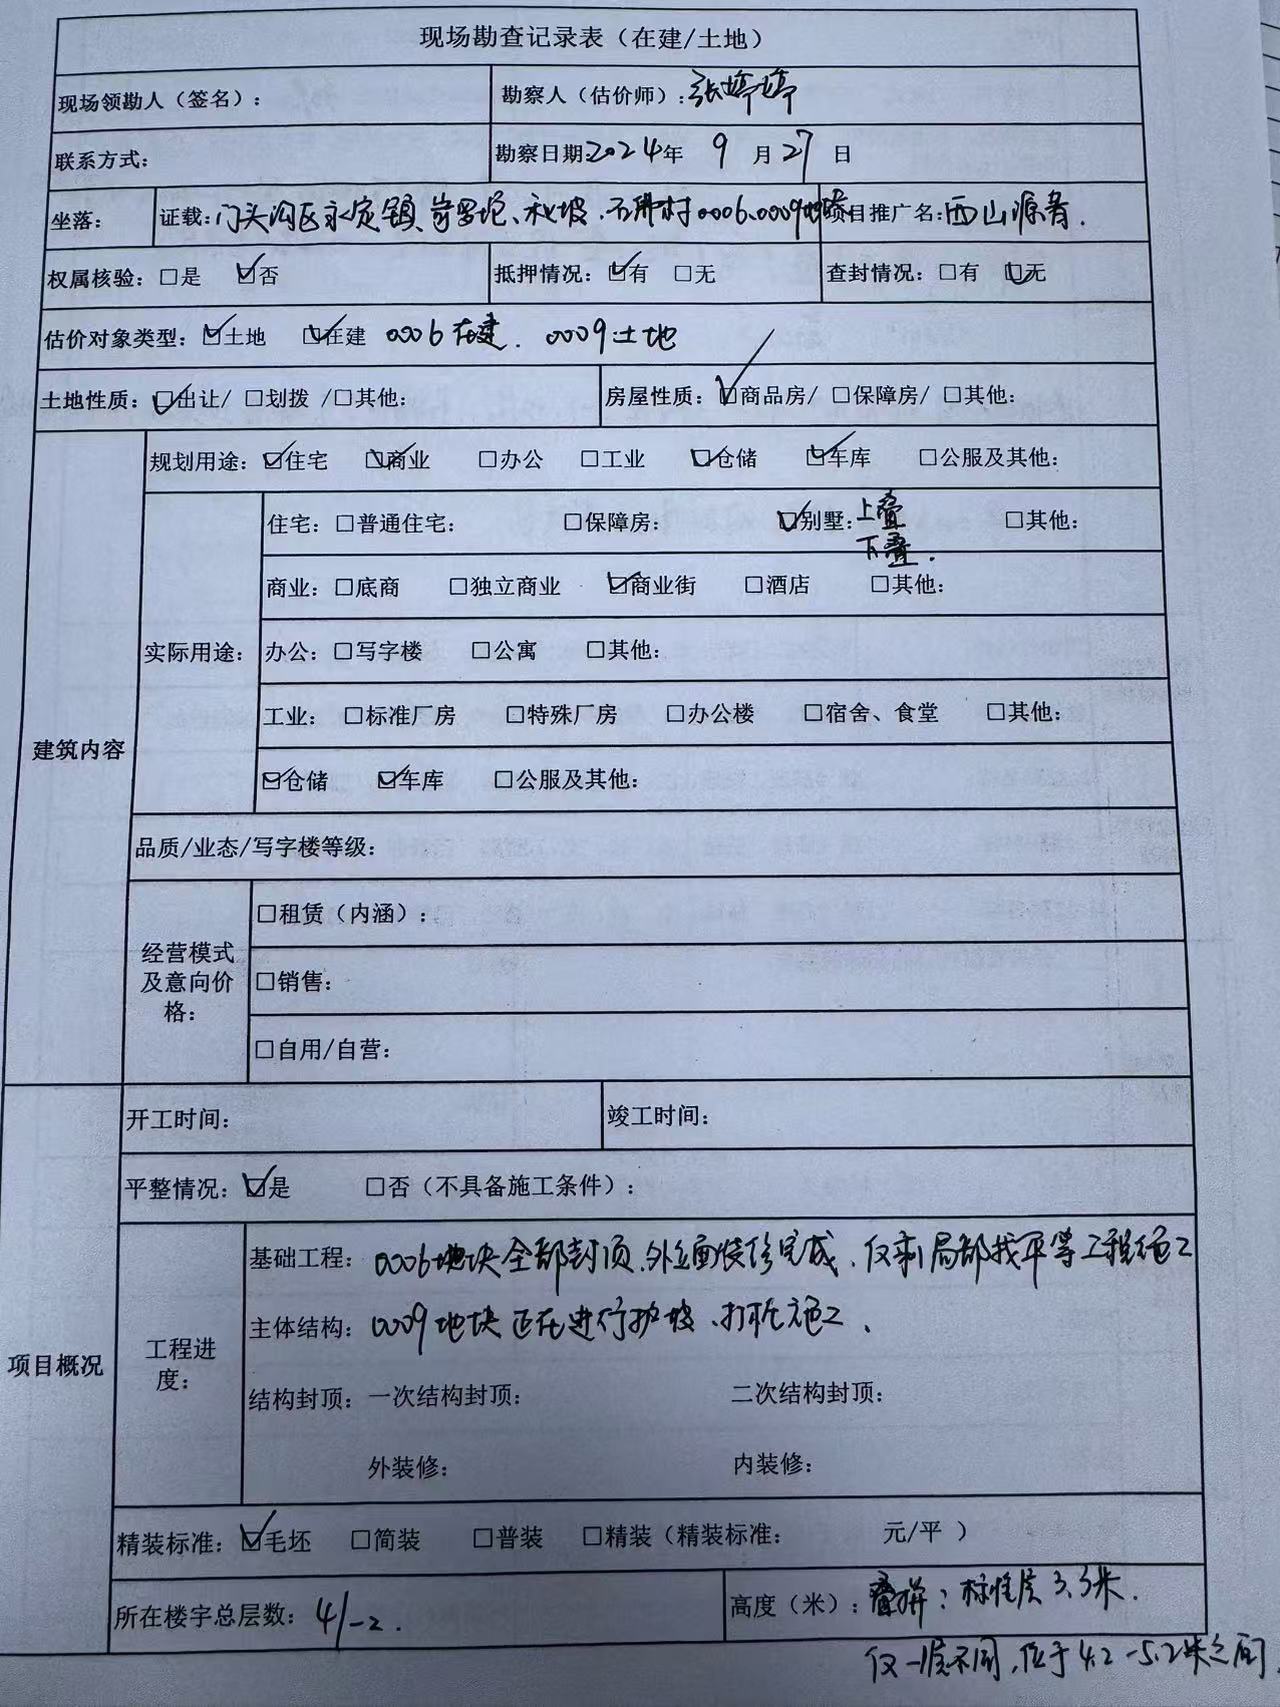 现场勘查记录表（在建/土地）
现场领勘人（签名）： 勘察人（估价师）：张婷婷
联系方式： 勘察日期:2024年 9 月 27 日
坐落： 证载：门头沟区永定镇、岢罗坨、秋坡、石厂村0006、0009地块 项目推广名：西山源著.
权属核验：☐是 ☑否 抵押情况：☑有 ☐无 查封情况：☐有 ☑无
估价对象类型：☑土地 ☑在建 0006在建. 0009土地
土地性质：☑出让/ ☐划拨 /☐其他： 房屋性质：☑商品房/ ☐保障房/ ☐其他：
建筑内容
规划用途：☑住宅 ☑商业 ☐办公 ☐工业 ☑仓储 ☑车库 ☐公服及其他：
实际用途：
住宅：☐普通住宅： ☐保障房： ☑别墅：上叠 ☐其他：
下叠.
商业：☐底商 ☐独立商业 ☑商业街 ☐酒店 ☐其他：
办公：☐写字楼 ☐公寓 ☐其他：
工业：☐标准厂房 ☐特殊厂房 ☐办公楼 ☐宿舍、食堂 ☐其他：
☑仓储 ☑车库 ☐公服及其他：
品质/业态/写字楼等级：
经营模式
及意向价
格：
☐租赁（内涵）：
☐销售：
☐自用/自营：
项目概况
开工时间： 竣工时间：
平整情况：☑是 ☐否（不具备施工条件）：
工程进
度：
基础工程：0006地块全部封顶、外立面装修完成、仅剩局部找平等工程施工
主体结构：0009地块正在进行护坡、打桩施工、
结构封顶：一次结构封顶： 二次结构封顶：
外装修： 内装修：
精装标准：☑毛坯 ☐简装 ☐普装 ☐精装（精装标准： 元/平 ）
所在楼宇总层数：4/-2. 高度（米）：叠拼：标准层3.3米.
仅一层不同,位于4.2-5.2米之间.